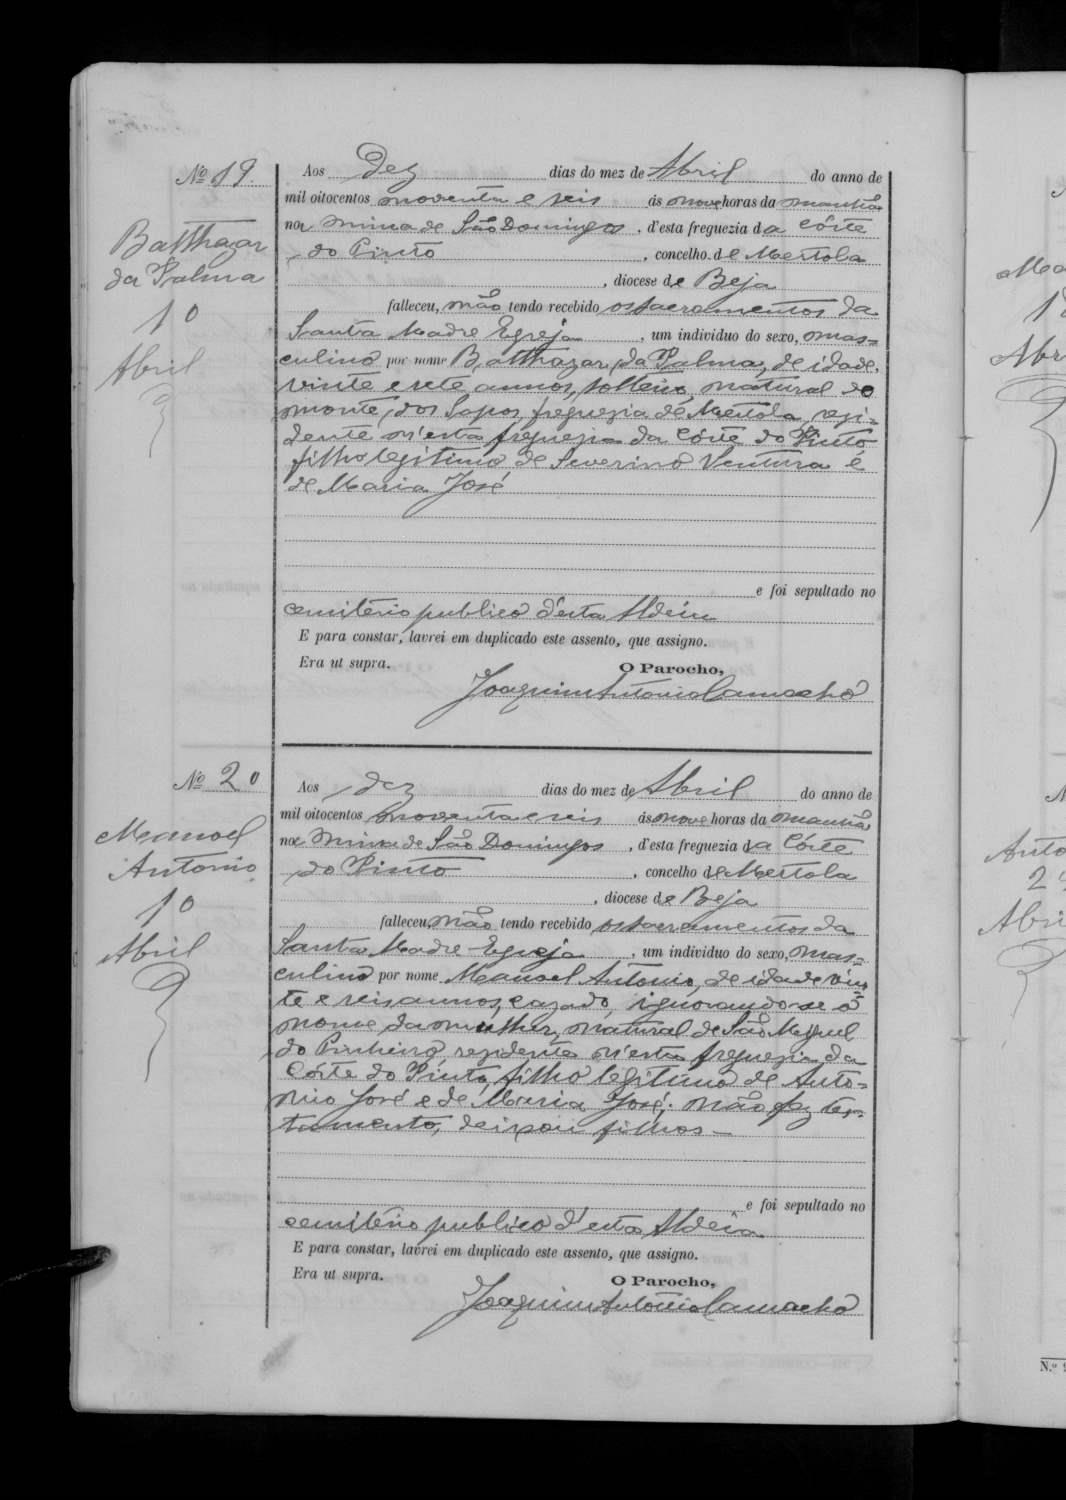 Nº 19.
Balthazar
da Palma
10
Abril
Aos Dez dias do mez de Abril do anno de
mil oitocentos noventa e seis ás nove horas da manhã
na Mina de São Domingos, d'esta freguezia da Côrte
do Pinto, concelho de Mertola
, diocese de Beja
falleceu, não tendo recebido os sacramentos da
Santa Madre Egreja, um individuo do sexo, mas=
culino por nome Balthazar da Palma, de idade
vinte e sete annos, solteiro, natural do
monte dos Sapos, freguezia de Mertola, resi=
dente n'esta freguezia da Côrte do Pinto
filho legitimo de Severino Ventura e
de Maria José
e foi sepultado no
cemitério publico d'esta Aldeia
E para constar, lavrei em duplicado este assento, que assigno.
Era ut supra.
O Parocho,
Joaquim Antonio Camacho
Nº 20
Manoel
Antonio
10
Abril
Aos dez dias do mez de Abril do anno de
mil oitocentos noventa e seis ás nove horas da manhã
na Mina de São Domingos, d'esta freguezia da Côrte
do Pinto, concelho de Mertola
, diocese de Beja
falleceu, não tendo recebido os sacramentos da
Santa Madre Egreja, um individuo do sexo, mas=
culino por nome Manoel Antonio, de idade vin=
te e seis annos, cazado, ignorando-se o
nome da mulher, natural de São Miguel
do Pinheiro, rezidente n'esta freguezia da
Côrte do Pinto, filho legitimo de Anto=
nio José e de Maria José; não fez tes=
tamento, deixou filhos —
e foi sepultado no
cemitério publico d'esta Aldeia
E para constar, lavrei em duplicado este assento, que assigno.
Era ut supra.
O Parocho,
Joaquim Antonio Camacho